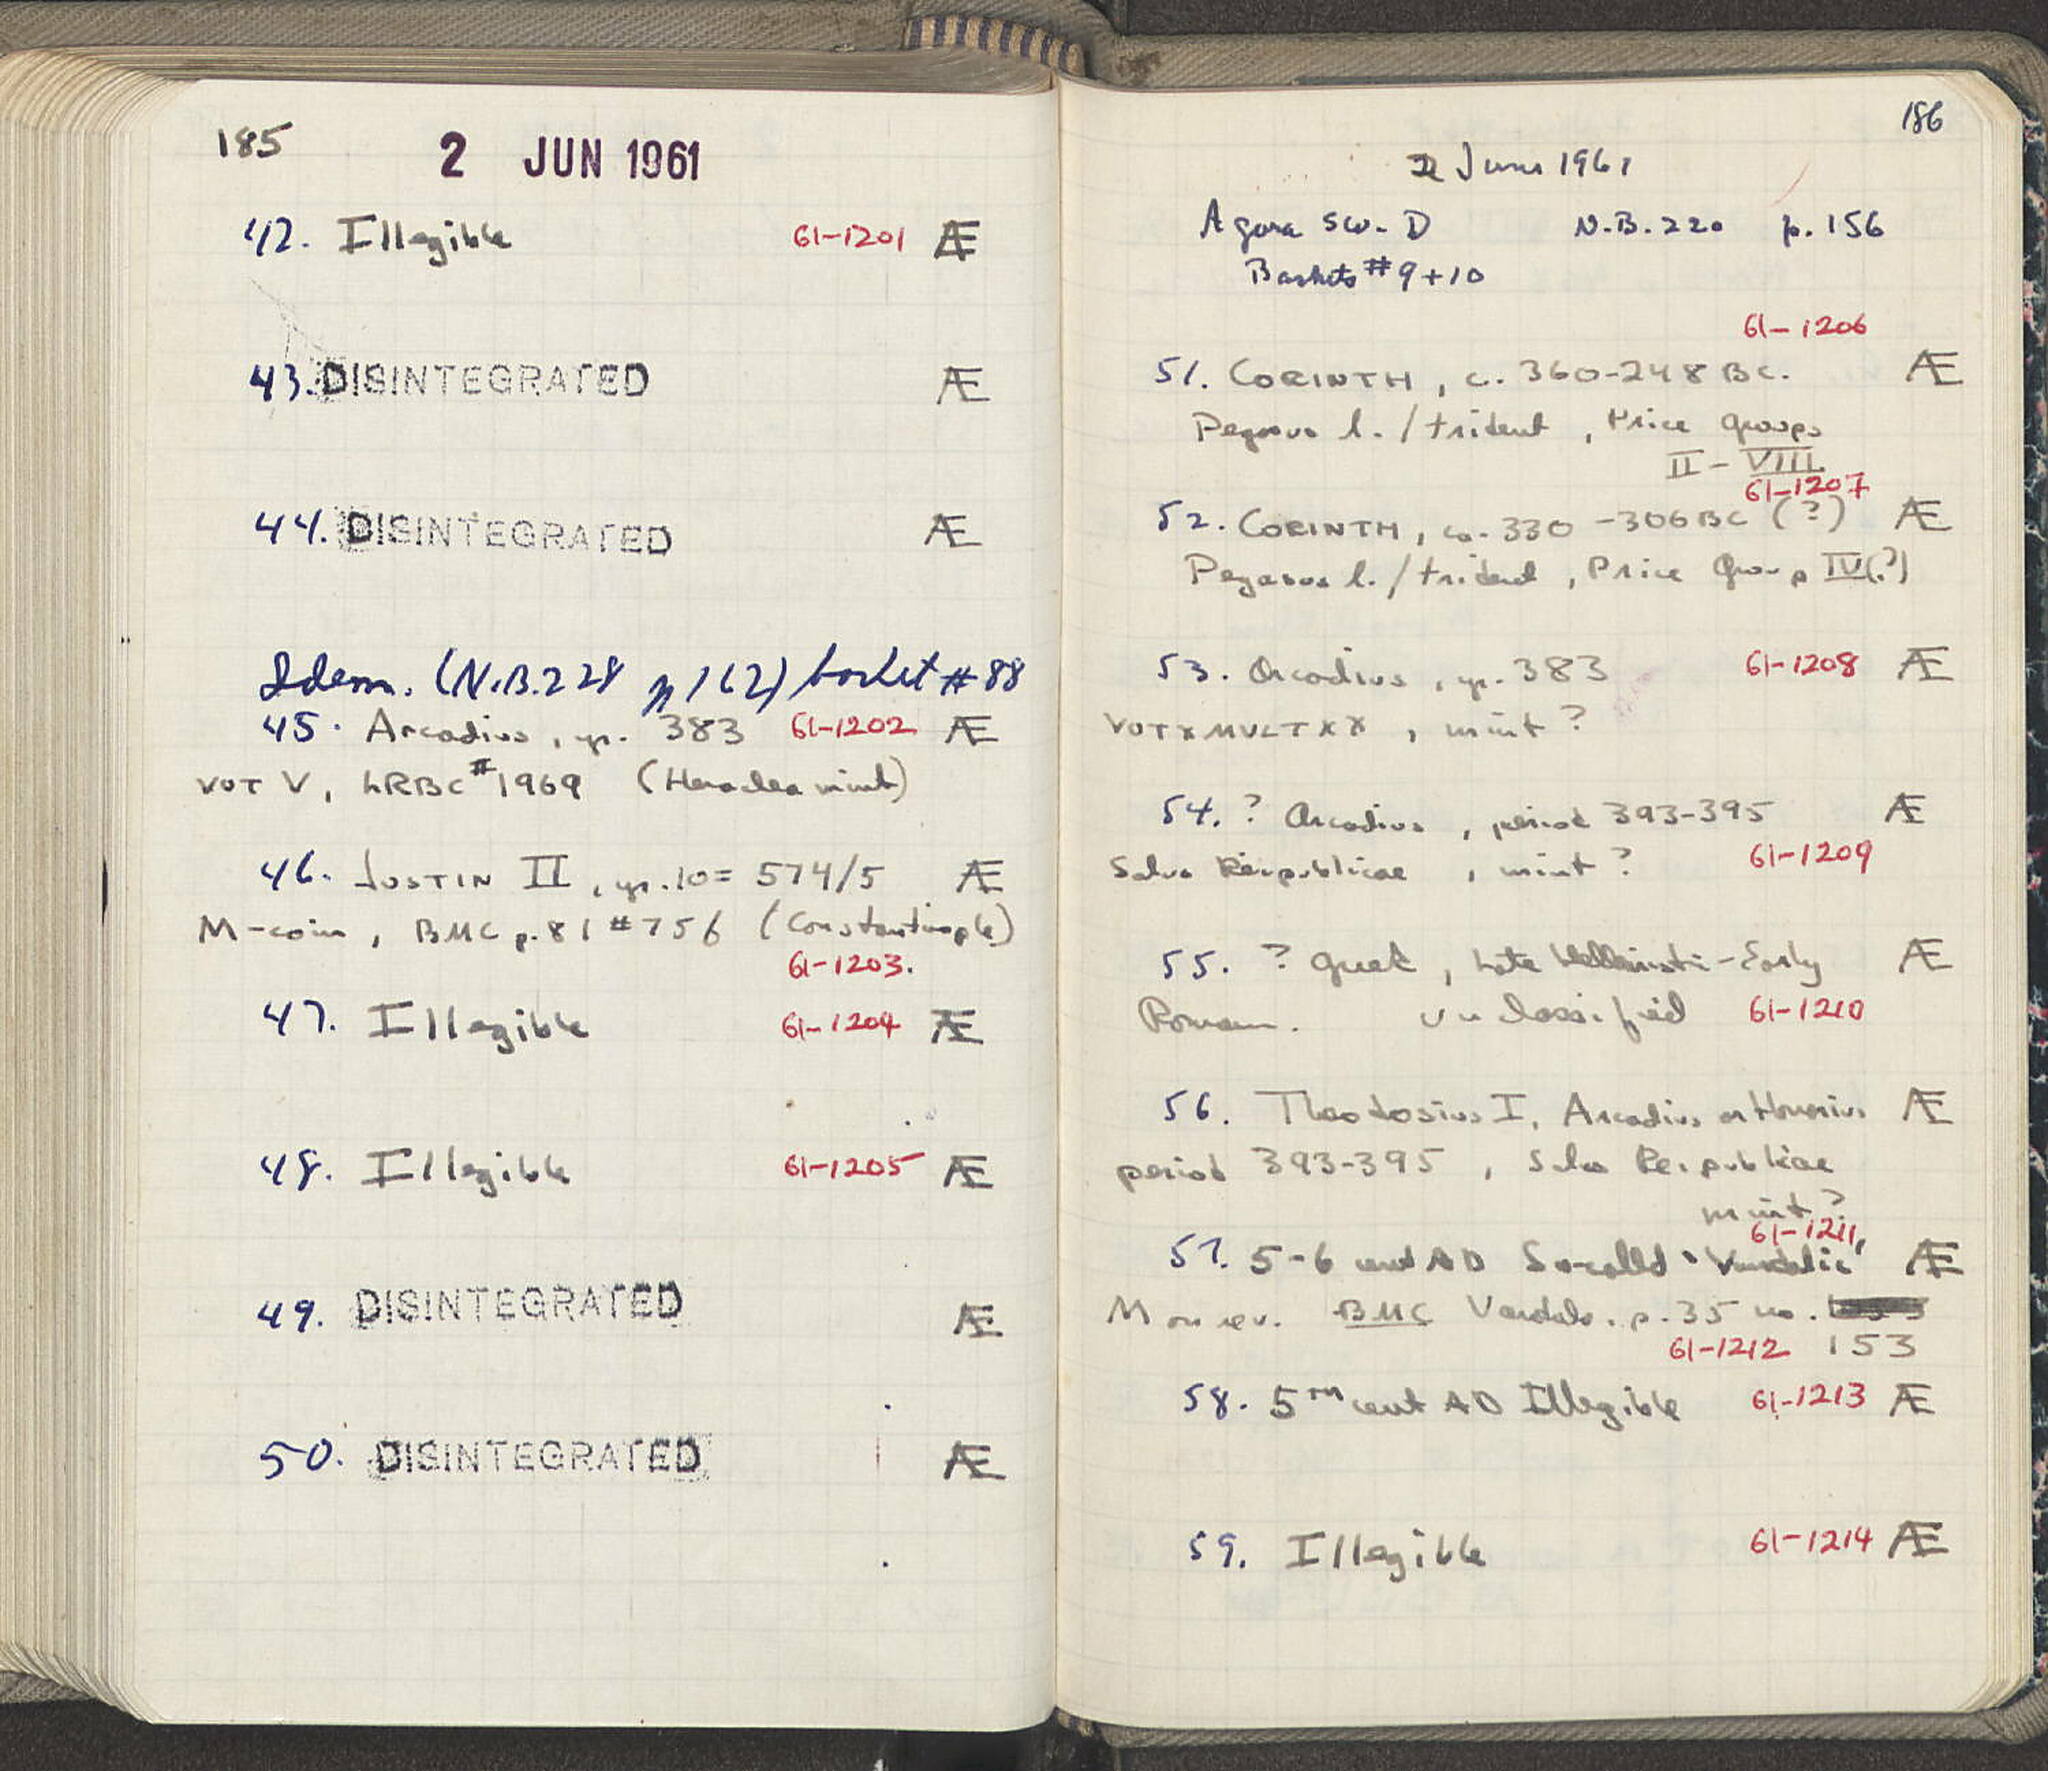 185 2 JUN 1961
42. Illegible 61-1201 Æ
43. DISINTEGRATED Æ
44. DISINTEGRATED Æ
Idem. (N.B. 228 p 162) basket # 88
45. Arcadius, yr. 383 61-1202 Æ
VOT V, LRBC #1969 (Heraclea mint)
46. JUSTIN II, yr. 10 = 574/5 Æ
M-coin, BMC p. 81 #756 (Constantinople)
61-1203.
47. Illegible 61-1204 Æ
48. Illegible 61-1205 Æ
49. DISINTEGRATED Æ
50. DISINTEGRATED Æ
186
2 June 1961
Agora SW. D N.B. 220 p. 156
Baskets # 9+10
61-1206
51. CORINTH, c. 360-248 BC. Æ
Pegasus l. / trident, Price groups
II - VIII
61-1207
52. CORINTH, ca. 330-306 BC (?) Æ
Pegasus l. / trident, Price Group IV(?)
53. Arcadius, yr. 383 61-1208 Æ
VOT X MULT XX, mint?
54. ? Arcadius, period 393-395 Æ
Salus Reipublicae, mint? 61-1209
55. ? Greek, Late Hellenistic-Early Æ
Roman. Unclassified 61-1210
56. Theodosius I, Arcadius or Honorius Æ
period 393-395, Salus Reipublicae
mint?
61-1211,
57. 5-6 cent AD So-called 'Vandalic' Æ
M on rev. BMC Vandals. p. 35 no.
61-1212 153
58. 5TH cent AD Illegible 61-1213 Æ
59. Illegible 61-1214 Æ